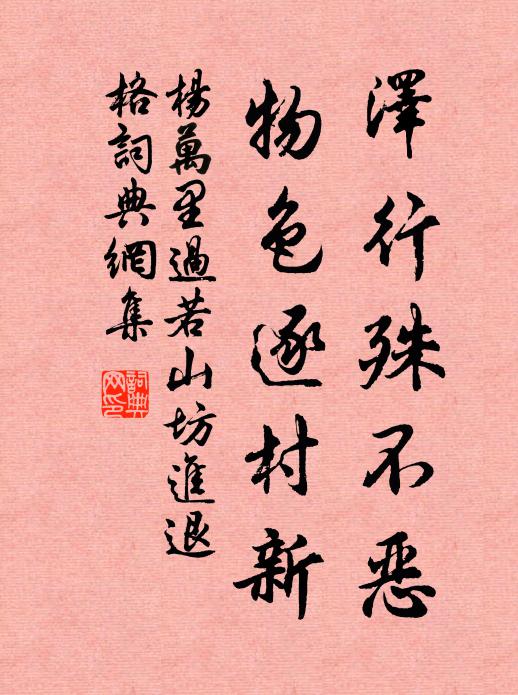 澤行殊不恶
物色逐村新
楊萬里過若山坊進退
格詞典網集
詞典網印